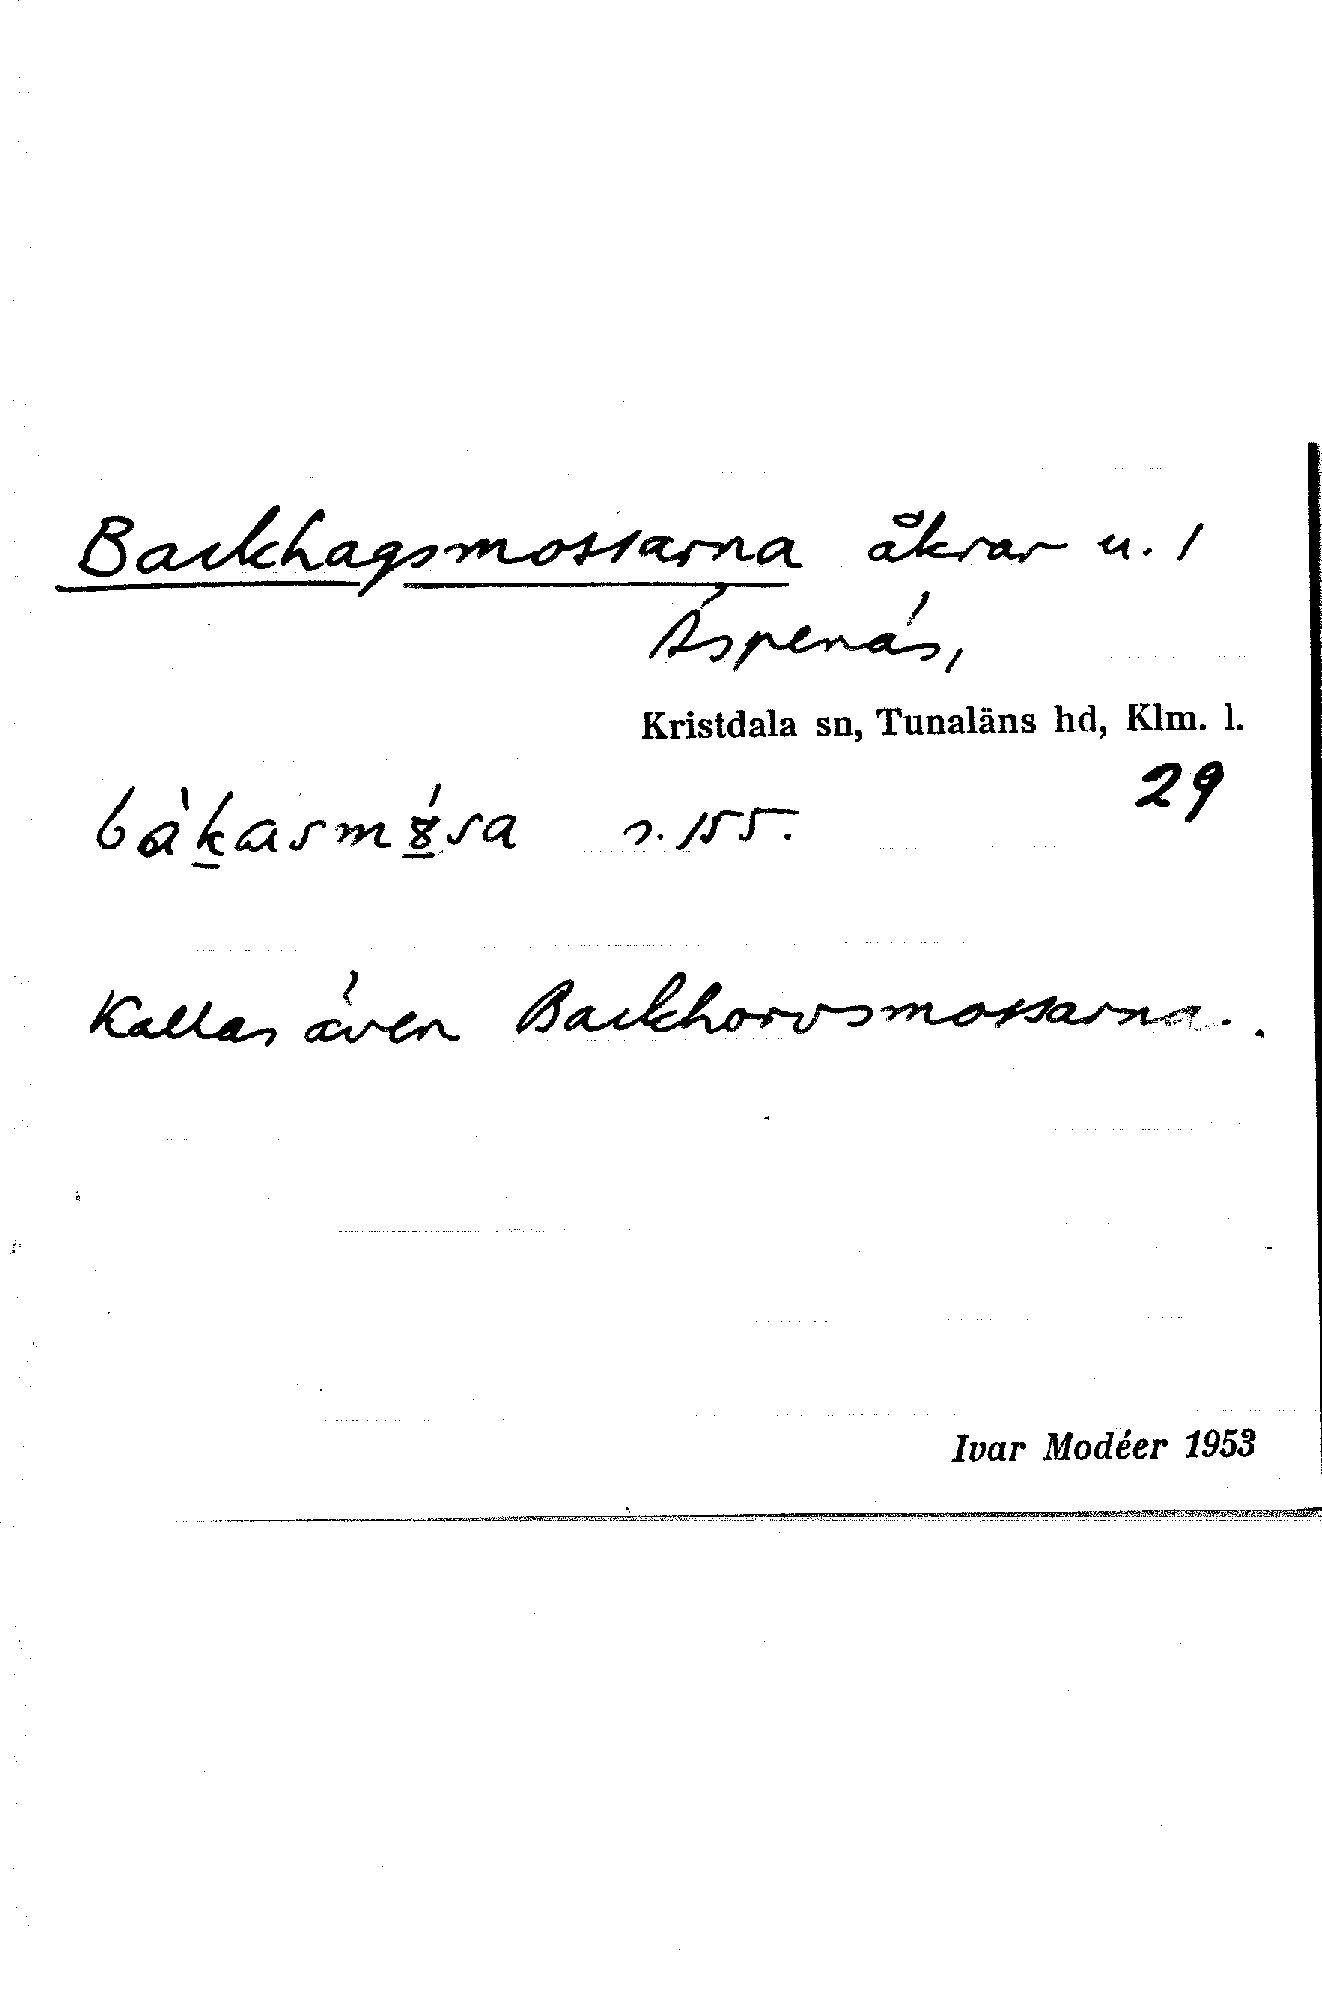 Backhagsmossarna åkrar u. 1
Aspenäs,
Kristdala sn, Tunaläns hd, Klm. l.
29
bàkasmósa s. 155.
Kallas även Backhorvsmossarna.
Ivar Modéer 1953